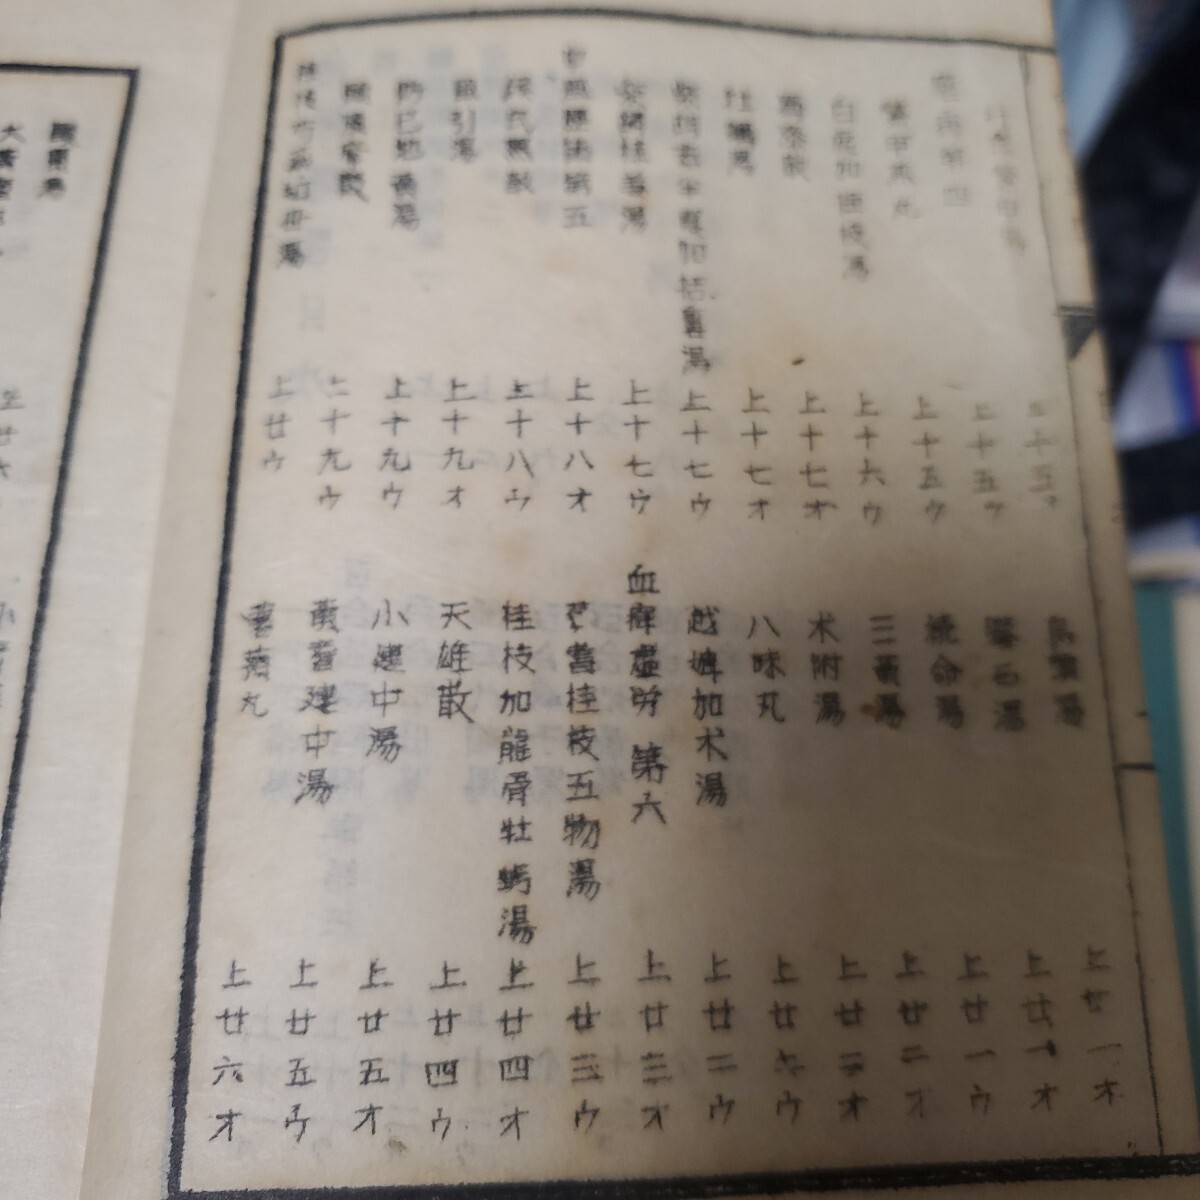 上十五ウ
上十五ウ
鱉甲煎丸 上十五ウ
白虎加桂枝湯 上十六ウ
蜀漆散 上十七オ
牡蠣湯 上十七オ
柴胡去半夏加括蔞湯 上十七ウ
柴胡桂薑湯 上十七ウ
中風歴節第五 上十八オ
侯氏黒散 上十八ウ
風引湯 上十九オ
防已地黄湯 上十九ウ
頭風摩散 上十九ウ
桂枝芍薬知母湯 上廿ウ
烏頭湯 上廿一オ
礬石湯 上廿一オ
続命湯 上廿一ウ
三黄湯 上廿二オ
朮附湯 上廿二オ
八味丸 上廿二ウ
越婢加朮湯 上廿二ウ
血痺虚労 第六 上廿三オ
黄耆桂枝五物湯 上廿三ウ
桂枝加龍骨牡蠣湯 上廿四オ
天雄散 上廿四ウ
小建中湯 上廿五オ
黄耆建中湯 上廿五ウ
薯蕷丸 上廿六オ